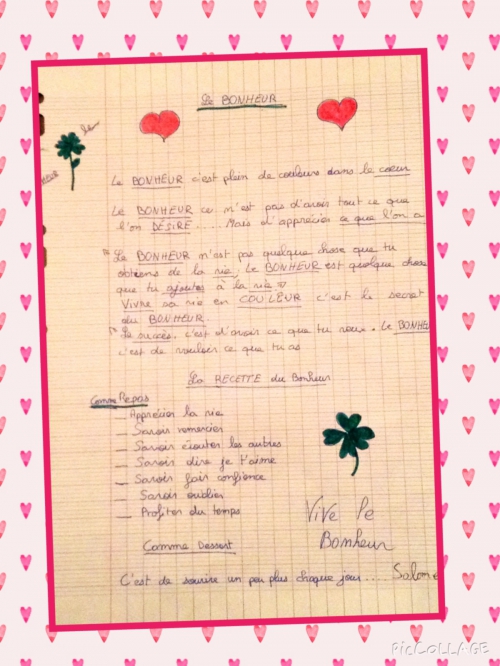 Le BONHEUR
Le BONHEUR c'est plein de couleurs dans le coeur
Le BONHEUR ce n'est pas d'avoir tout ce que
l'on DÉSIRE...... Mais d'apprécier ce que l'on a
Le BONHEUR n'est pas quelque chose que tu
obtiens de la vie. Le BONHEUR est quelque chose
que tu ajoutes à la vie
Vivre sa vie en COULEUR c'est le secret
du BONHEUR.
Le succès. c'est d'avoir ce que tu veux. Le BONHEU
c'est de vouloir ce que tu as
La RECETTE du Bonheur
Comme Repas
_ Apprécier la vie
_ Savoir remercier
_ Savoir écouter les autres
_ Savoir dire je t'aime
_ Savoir fair confience
_ Savoir oublier
_ Profiter du temps
ViVe le
Bonheur
Comme Dessert
C'est de sourire un peu plus chaque jour..... Salomé
PicCOLLAGE